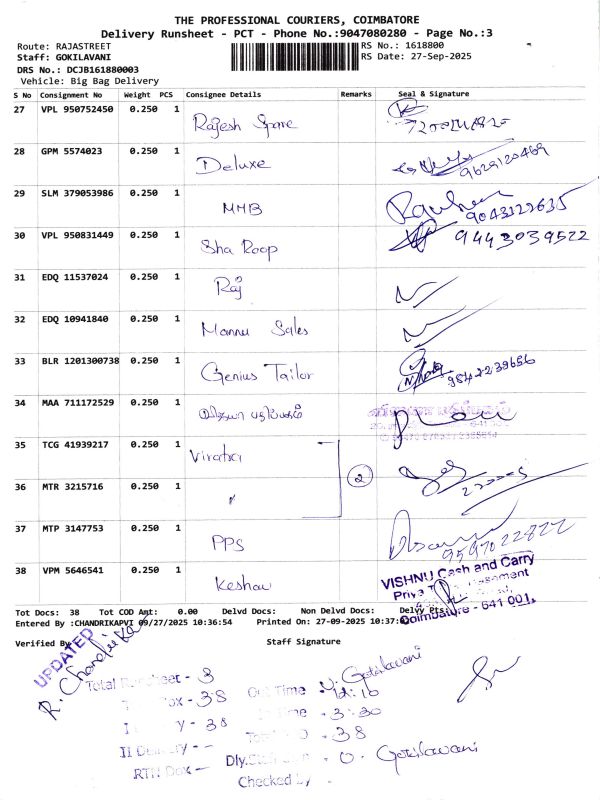 THE PROFESSIONAL COURIERS, COIMBATORE
Delivery Runsheet - PCT - Phone No.:9047080280 - Page No.:3
Route: RAJASTREET
RS No.: 1618800
Staff: GOKILAVANI
RS Date: 27-Sep-2025
DRS No.: DCJB161880003
Vehicle: Big Bag Delivery
S No Consignment No Weight PCS Consignee Details Remarks Seal & Signature
27 VPL 950752450 0.250 1 Rajesh Spare
28 GPM 5574023 0.250 1 Deluxe 9629120469
29 SLM 379053986 0.250 1 MMB 9043122635
30 VPL 950831449 0.250 1 Sha Roop 9443039522
31 EDQ 11537024 0.250 1 Raj
32 EDQ 10941840 0.250 1 Mannu Sales
33 BLR 1201300738 0.250 1 Genius Tailor 9842239656
34 MAA 711172529 0.250 1
35 TCG 41939217 0.250 1 Viratra
2
36 MTR 3215716 0.250 1 "
37 MTP 3147753 0.250 1 PPS 9597022822
38 VPM 5646541 0.250 1 Keshav
VISHNU Cash and Carry
Coimbatore - 641 001.
Tot Docs: 38 Tot COD Amt: 0.00 Delvd Docs: Non Delvd Docs: Delvy Pts:
Entered By :CHANDRIKAPVI 09/27/2025 10:36:54 Printed On: 27-09-2025 10:37:
Verified By
Staff Signature
UPDATED
R. Chandrika
Total Runsheet - 3
N. Gokilavani
- 38 Out Time 12:10
- 38 Time - 3:30
- 38
II Delivery - -
RTN Dox -
Gokilavani
Checked by -